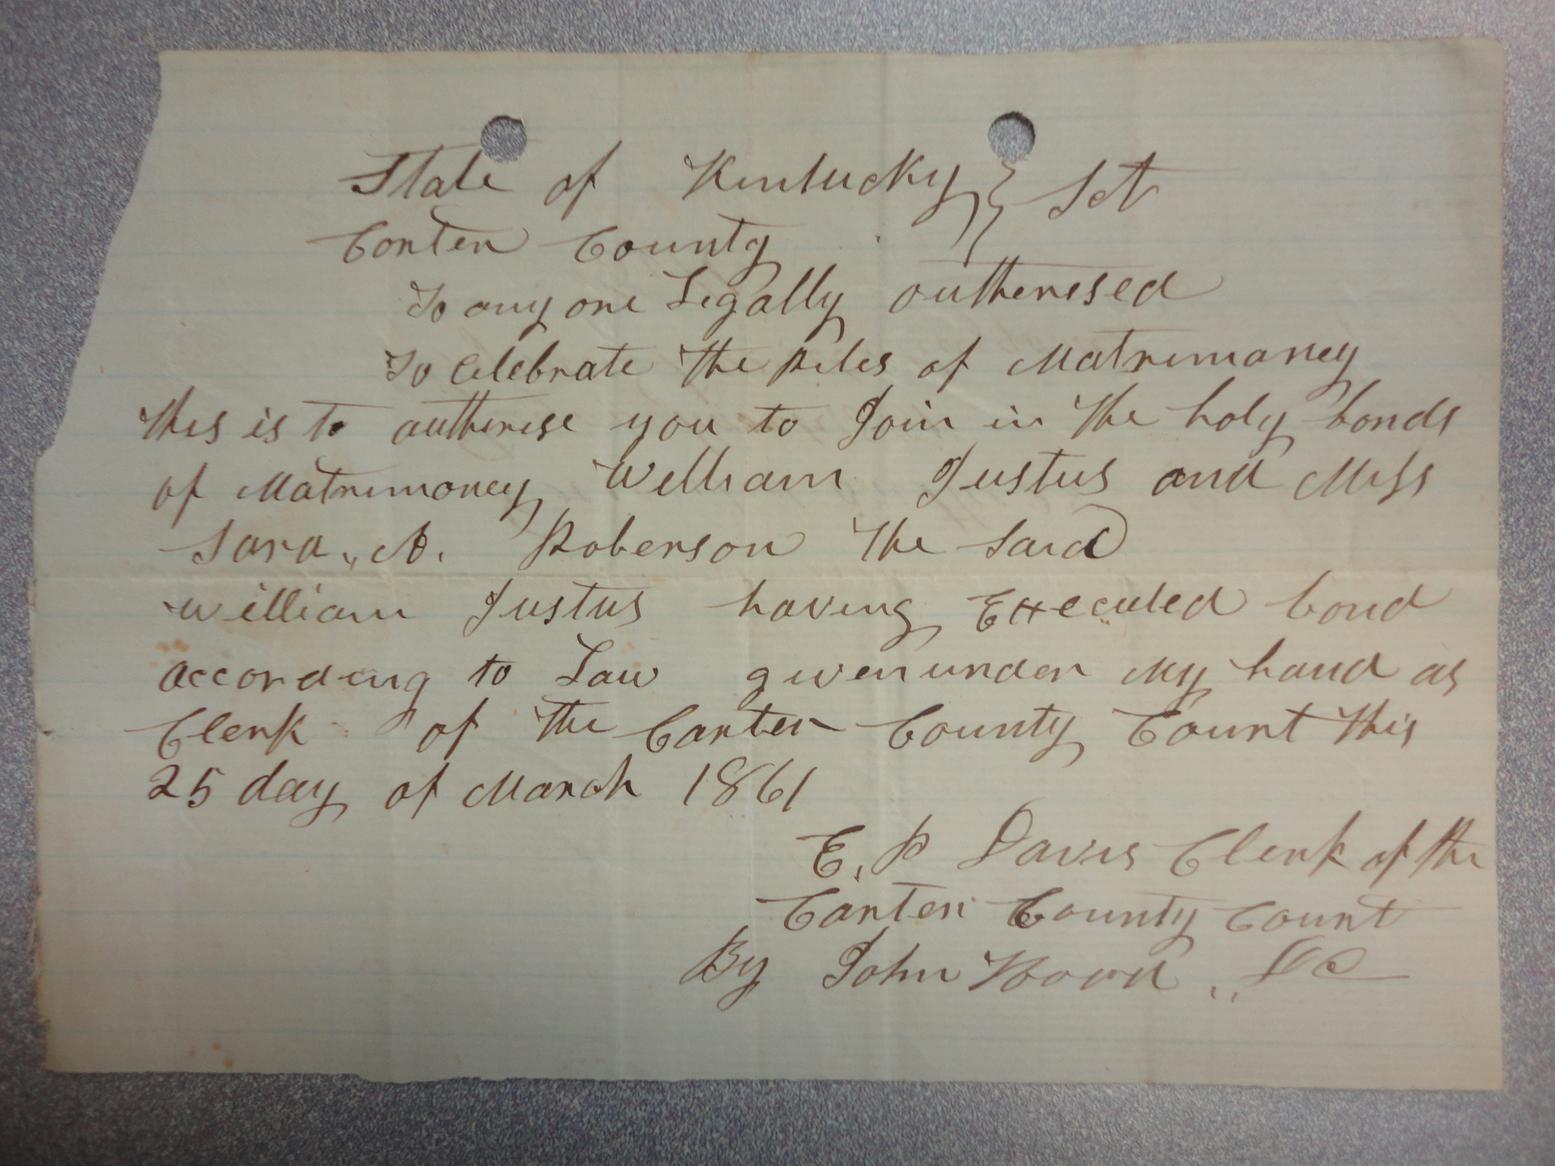 State of Kentucky } Sct
Carter County
To any one Legally outherised
To Celebrate the Rites of Matrimoney
this is to autherise you to Join in the holy bonds
of Matrimoney William Justus and Miss
Sara, A. Roberson the Said
William Justus having Executed bond
according to Law given under My hand as
Clerk of the Carter County Court this
25 day of March 1861
E. P Davis Clerk of the
Carter County Court
By John DC